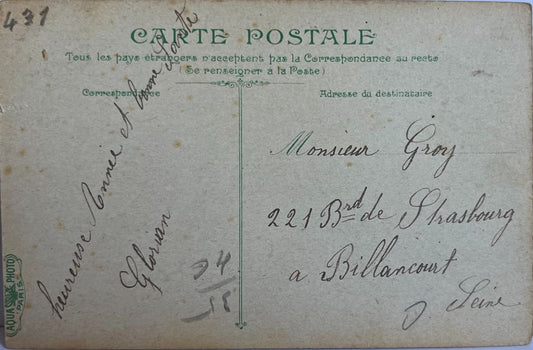 431
CARTE POSTALE
Tous les pays étrangers n'acceptent pas la Correspondance au recto
(Se renseigner à la Poste)
Correspondance
Adresse du destinataire
heureuse Année et bonne Santé
Glorian
Monsieur Groy
221 Brd de Strasbourg
a Billancourt
Seine
AQUA PHOTO
PARIS